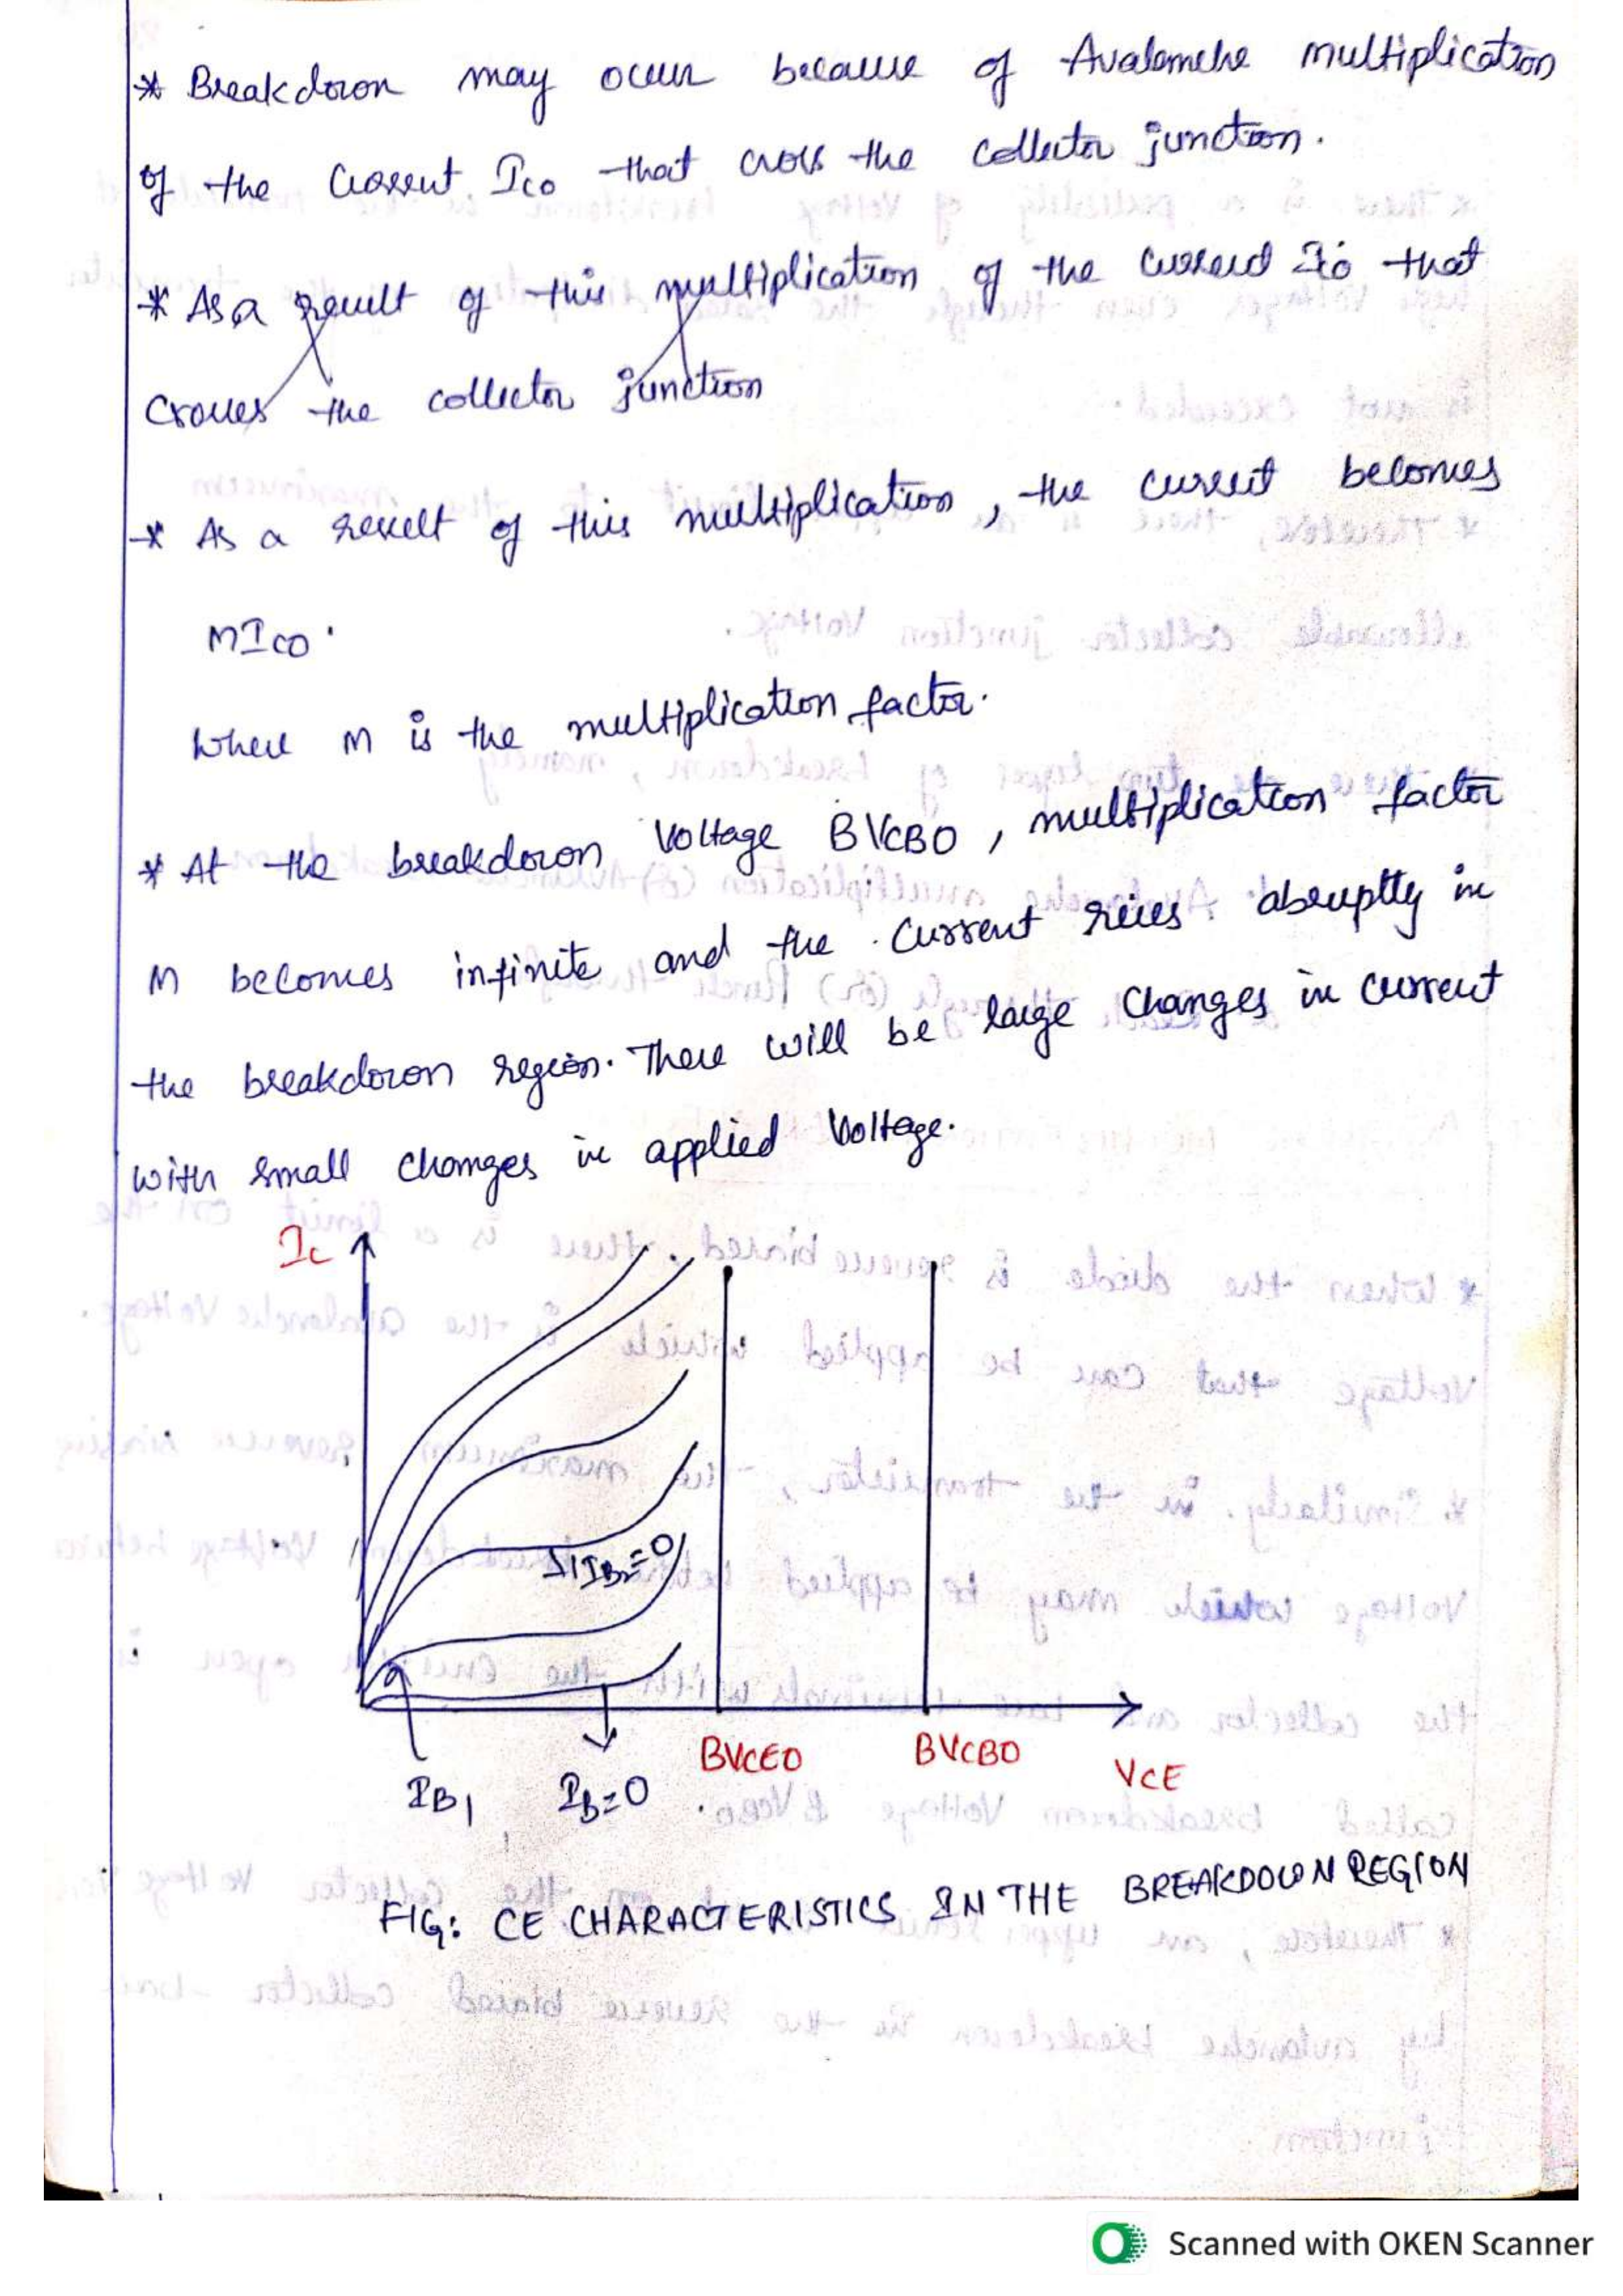 * Breakdown may occur because of Avalanche multiplication
of the Current Ico that cross the collector junction.
* As a result of this multiplication of the current Ico that
crosses the collector junction
* As a result of this multiplication, the current becomes
MIco.
Where M is the multiplication factor.
* At the breakdown Voltage BVCBO, multiplication factor
M becomes infinite and the current rises abruptly in
the breakdown region. There will be large changes in current
with small changes in applied Voltage.
Ic
BVCEO BVCBO
VCE
IB1 IB=0
FIG: CE CHARACTERISTICS IN THE BREAKDOWN REGION
Scanned with OKEN Scanner